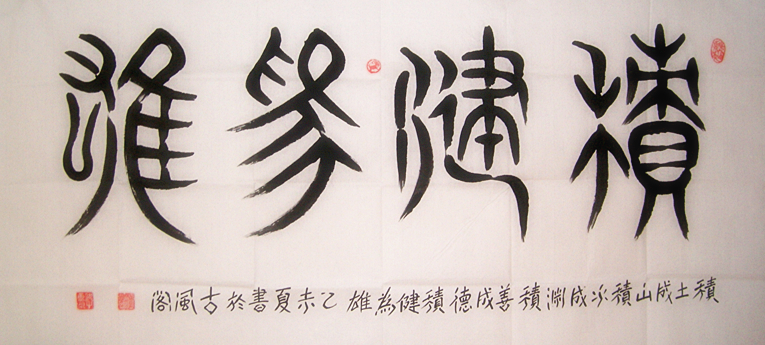 積健為雄
積土成山積水成淵積善成德積健為雄 乙未夏書於古風閣